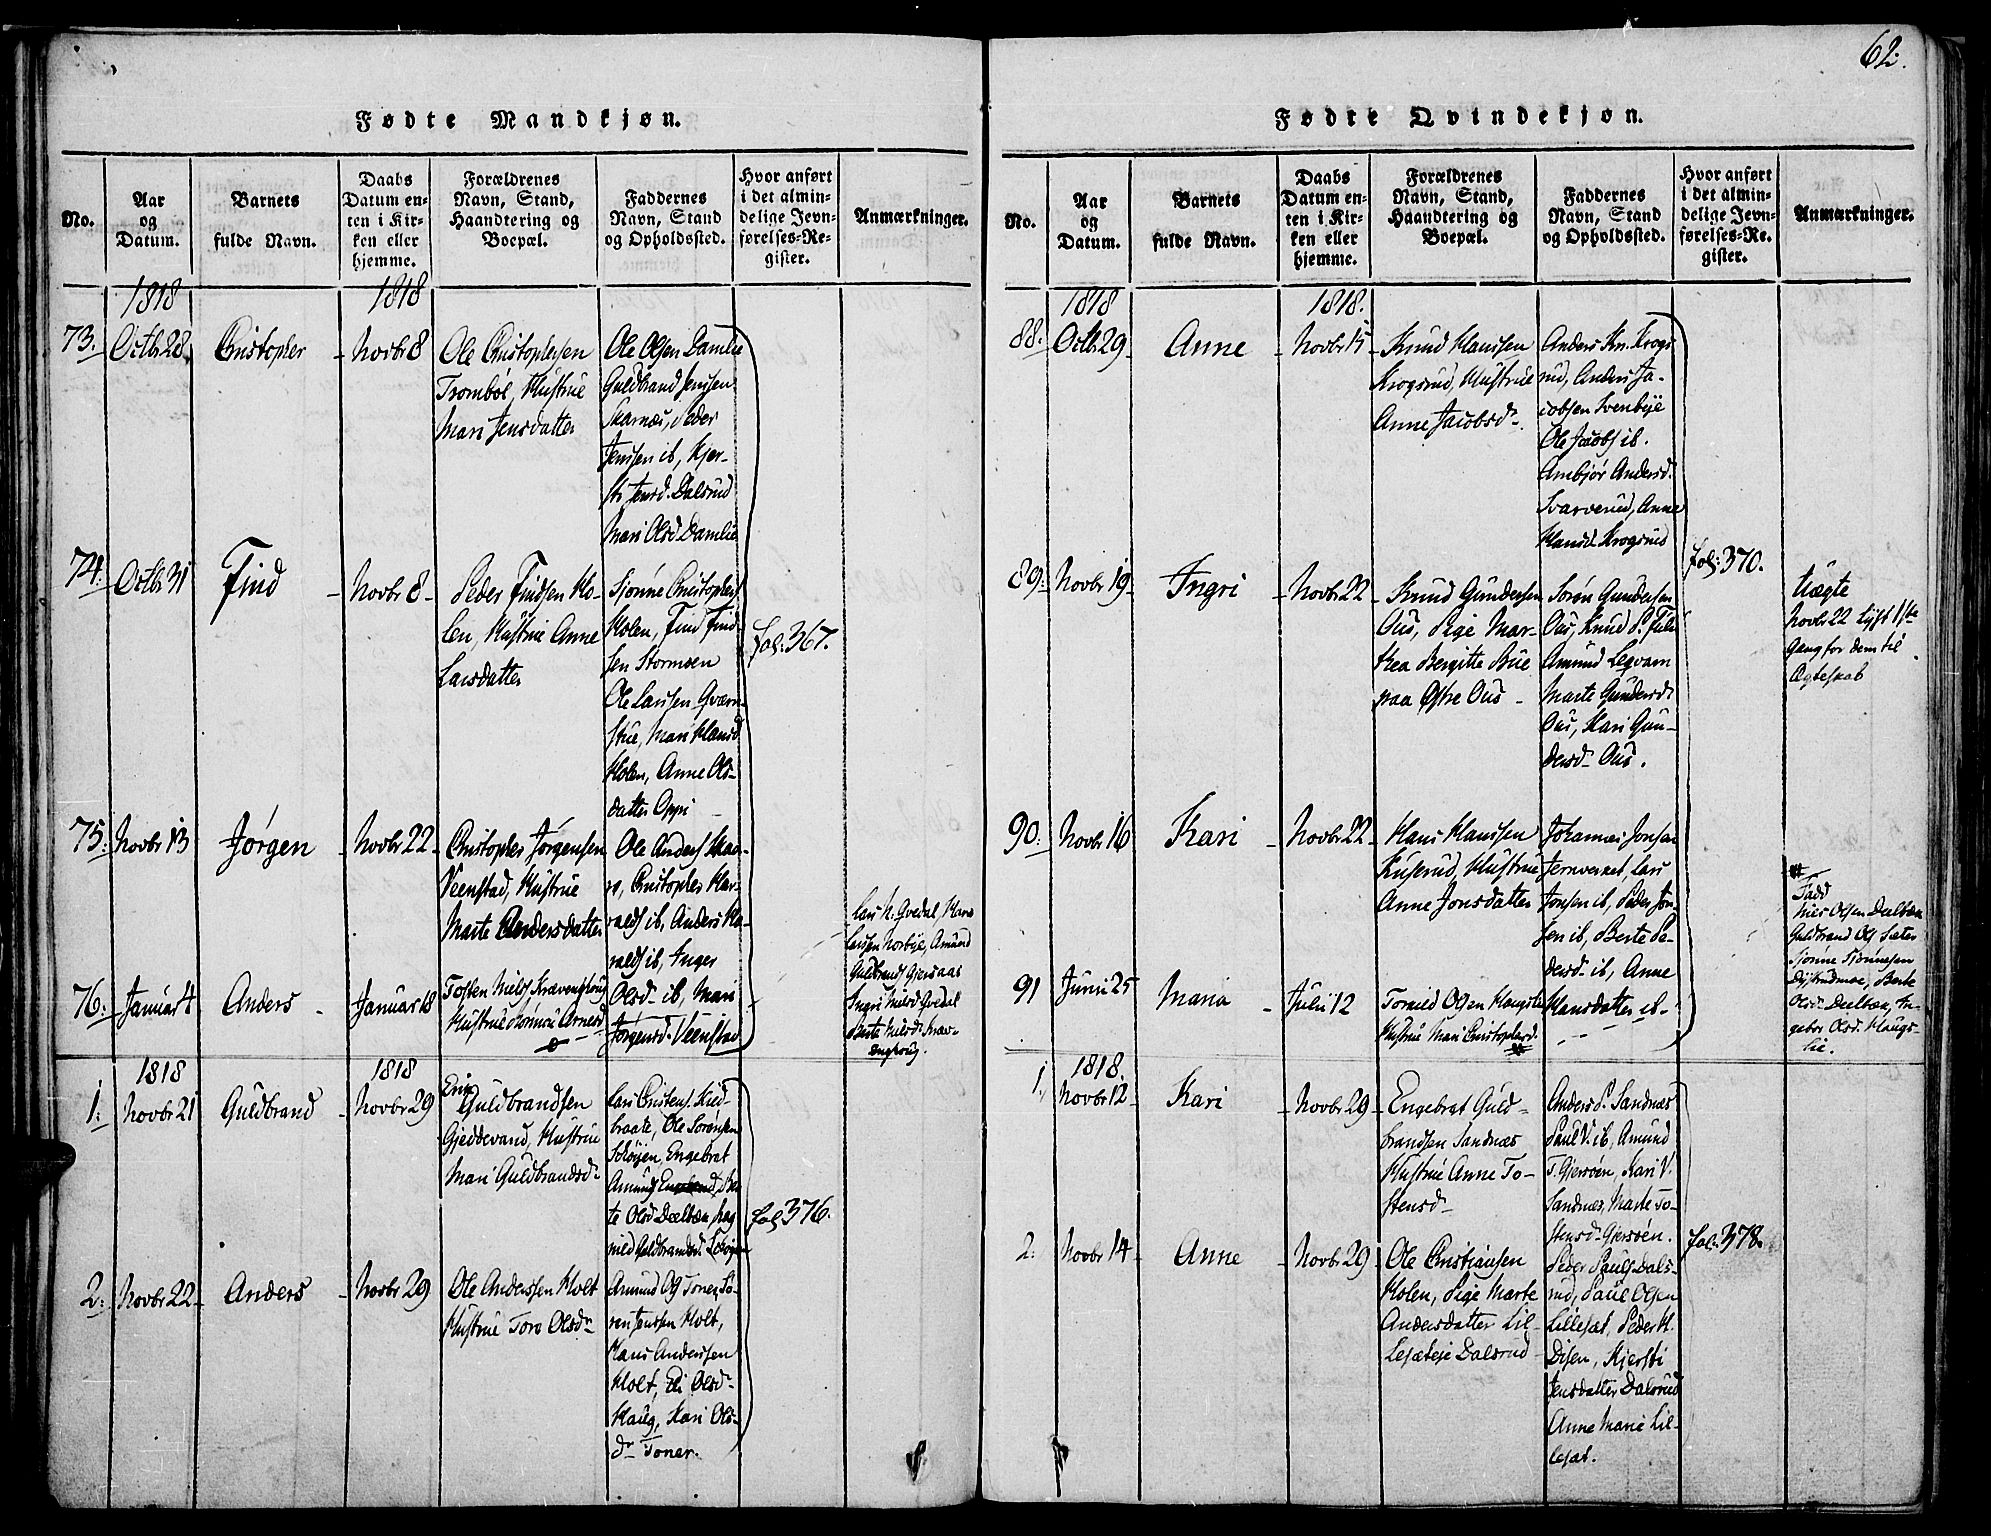 62.
Fødte Mandkjøn.
No.
Aar
og
Datum.
Barnets
fulde Navn.
Daabs
Datum en-
ten i Kir-
ken eller
hjemme.
Forældrenes
Navn, Stand,
Haandtering og
Boepæl.
Faddernes
Navn, Stand
og Opholdssted.
Hvor anført
i det almin-
delige Jevn-
førelses-Re-
gister.
Anmærkninger.
1818
1818
73.
Octbr 28
Christopher
Novbr 8
Ole Christophersen
Trombøl, Hustrue
Mari Jensdatter
Ole Olsen Damlie
Guldbrand Jenssen
Skarnæs, Peder
Jenssen ib, Kjer-
sti Jensd. Dalsrud
Mari Olsd Damlie
74.
Octbr 31
Find
Novbr 8
Peder Findsen Ho-
len, Hustrue Anne
Larsdatter
Sjønne Christophers
Holen, Find Find-
sen Stormoen
Ole Larssen Gværn-
stue, Mari Hansd
Holen, Anne Ols-
datter Oppi
fol: 367.
75.
Novbr 13
Jørgen
Novbr 22
Christopher Jørgensen
Veenstad, Hustrue
Marte Andersdatter
Ole Anders
Christopher Har-
ralds ib, Anders Ha-
ralds ib, Inger
Olsd ib, Mari
Jørgensd. Veenstad
76.
Januar 4
Anders
Januar 18
Tosten Niels
Hustrue
Lars N. Qvedal, Hans
Larssen Norbye, Amund
Guldbrands Gjersaas
Ingri Nielsd Qvedal
Berte Nielsd. Kræv-
enghoug.
1818
1818
1.
Novbr 21
Guldbrand
Novbr 29
Erik
Guldbrandsen
Gjeddevand, Hustrue
Mari Guldbrandsd.
Lars Christens.
braate, Ole Sørensen
Engebret
Amunds
te Olsd Deelbæk,
nild Guldbrandsd.
fol 376.
2.
Novbr 22
Anders
Novbr 29
Ole Anderssen Holt
Hustrue Toro Olsdr
Amund Ols Toner, Sø-
ren Jenssen Holt,
Hans Anderssen
Holt, Eli Olsdr
Haug, Kari Ols-
dr Toner.
Fødte Qvindekjøn.
No.
Aar
og
Datum.
Barnets
fulde Navn.
Daabs
Datum en-
ten i Kir-
ken eller
hjemme.
Forældrenes
Navn, Stand,
Haandtering og
Boepæl.
Faddernes
Navn, Stand
og Opholdssted.
Hvor anført
i det almin-
delige Jevn-
førelses-Re-
gister.
Anmærkninger.
1818
1818.
88.
Octbr 29
Anne
Novbr 15
Knud Hanssen
Krogsrud, Hustrue
Anne Jacobsdr.
Anders Kn. Krogs-
rud, Anders Ja-
cobsen Svenbye
Ole Jacobs ib.
Ambjør Andersd.
Svarverud, Anne
Hansd. Krogsrud
89.
Novbr 19
Ingri
Novbr 22
Knud Gundersen
Ous, Pige Mar-
thea Bergitte Bue
paa Østre Ous
Søren Gundersen
Ous, Knud P.
Amund Legvam
Marte Gundersd.
Ous, Kari Gun-
dersd. Ous.
fol: 370.
Uægte
Novbr 22 lyst 1ste
Gang for dem til
Ægteskab
90.
Novbr 16
Kari
Novbr 22
Hans Hanssen
Kuserud, Hustrue
Anne Jonsdatter
Johannes Jonsen
Jernverket, Lars
Jonsen ib, Peder Jon-
sen ib, Berte Pe-
dersd. ib, Anne
Hansdatter ib.
91
Junii 25
Maria
Julii 12
Tormild Olsen Haugslie
Hustrue Mari Christophersd.
Fadd
Niels Olsen Deelbæk
Guldbrand Ols Sæter
Sjønne Sjønnesen
Dystrudmoe, Berte
Olsd. Deelbæk, In-
gebor Olsd. Haugs-
lie.
1818.
1.
Novbr 12
Kari
Novbr 29
Engebret Guld-
brandsen Sandnæs
Hustrue Anne To-
stensd.
Anders P. Sandnæs
Paul V. ib, Amund
T. Gjersøen, Kari V.
Sandnæs, Marte To-
stensd. Gjersøen.
2.
Novbr 14
Anne
Novbr 29
Ole Christiansen
Holen, Pige Marte
Andersdatter Lil-
lesæteje Dalsrud
Peder Pauls Dals-
rud, Paul Olsen
Lillesæt, Peder H.
Disen, Kjersti
Jensdatter Dalsrud
Anne Marie Lil-
lesæt.
fol: 378.